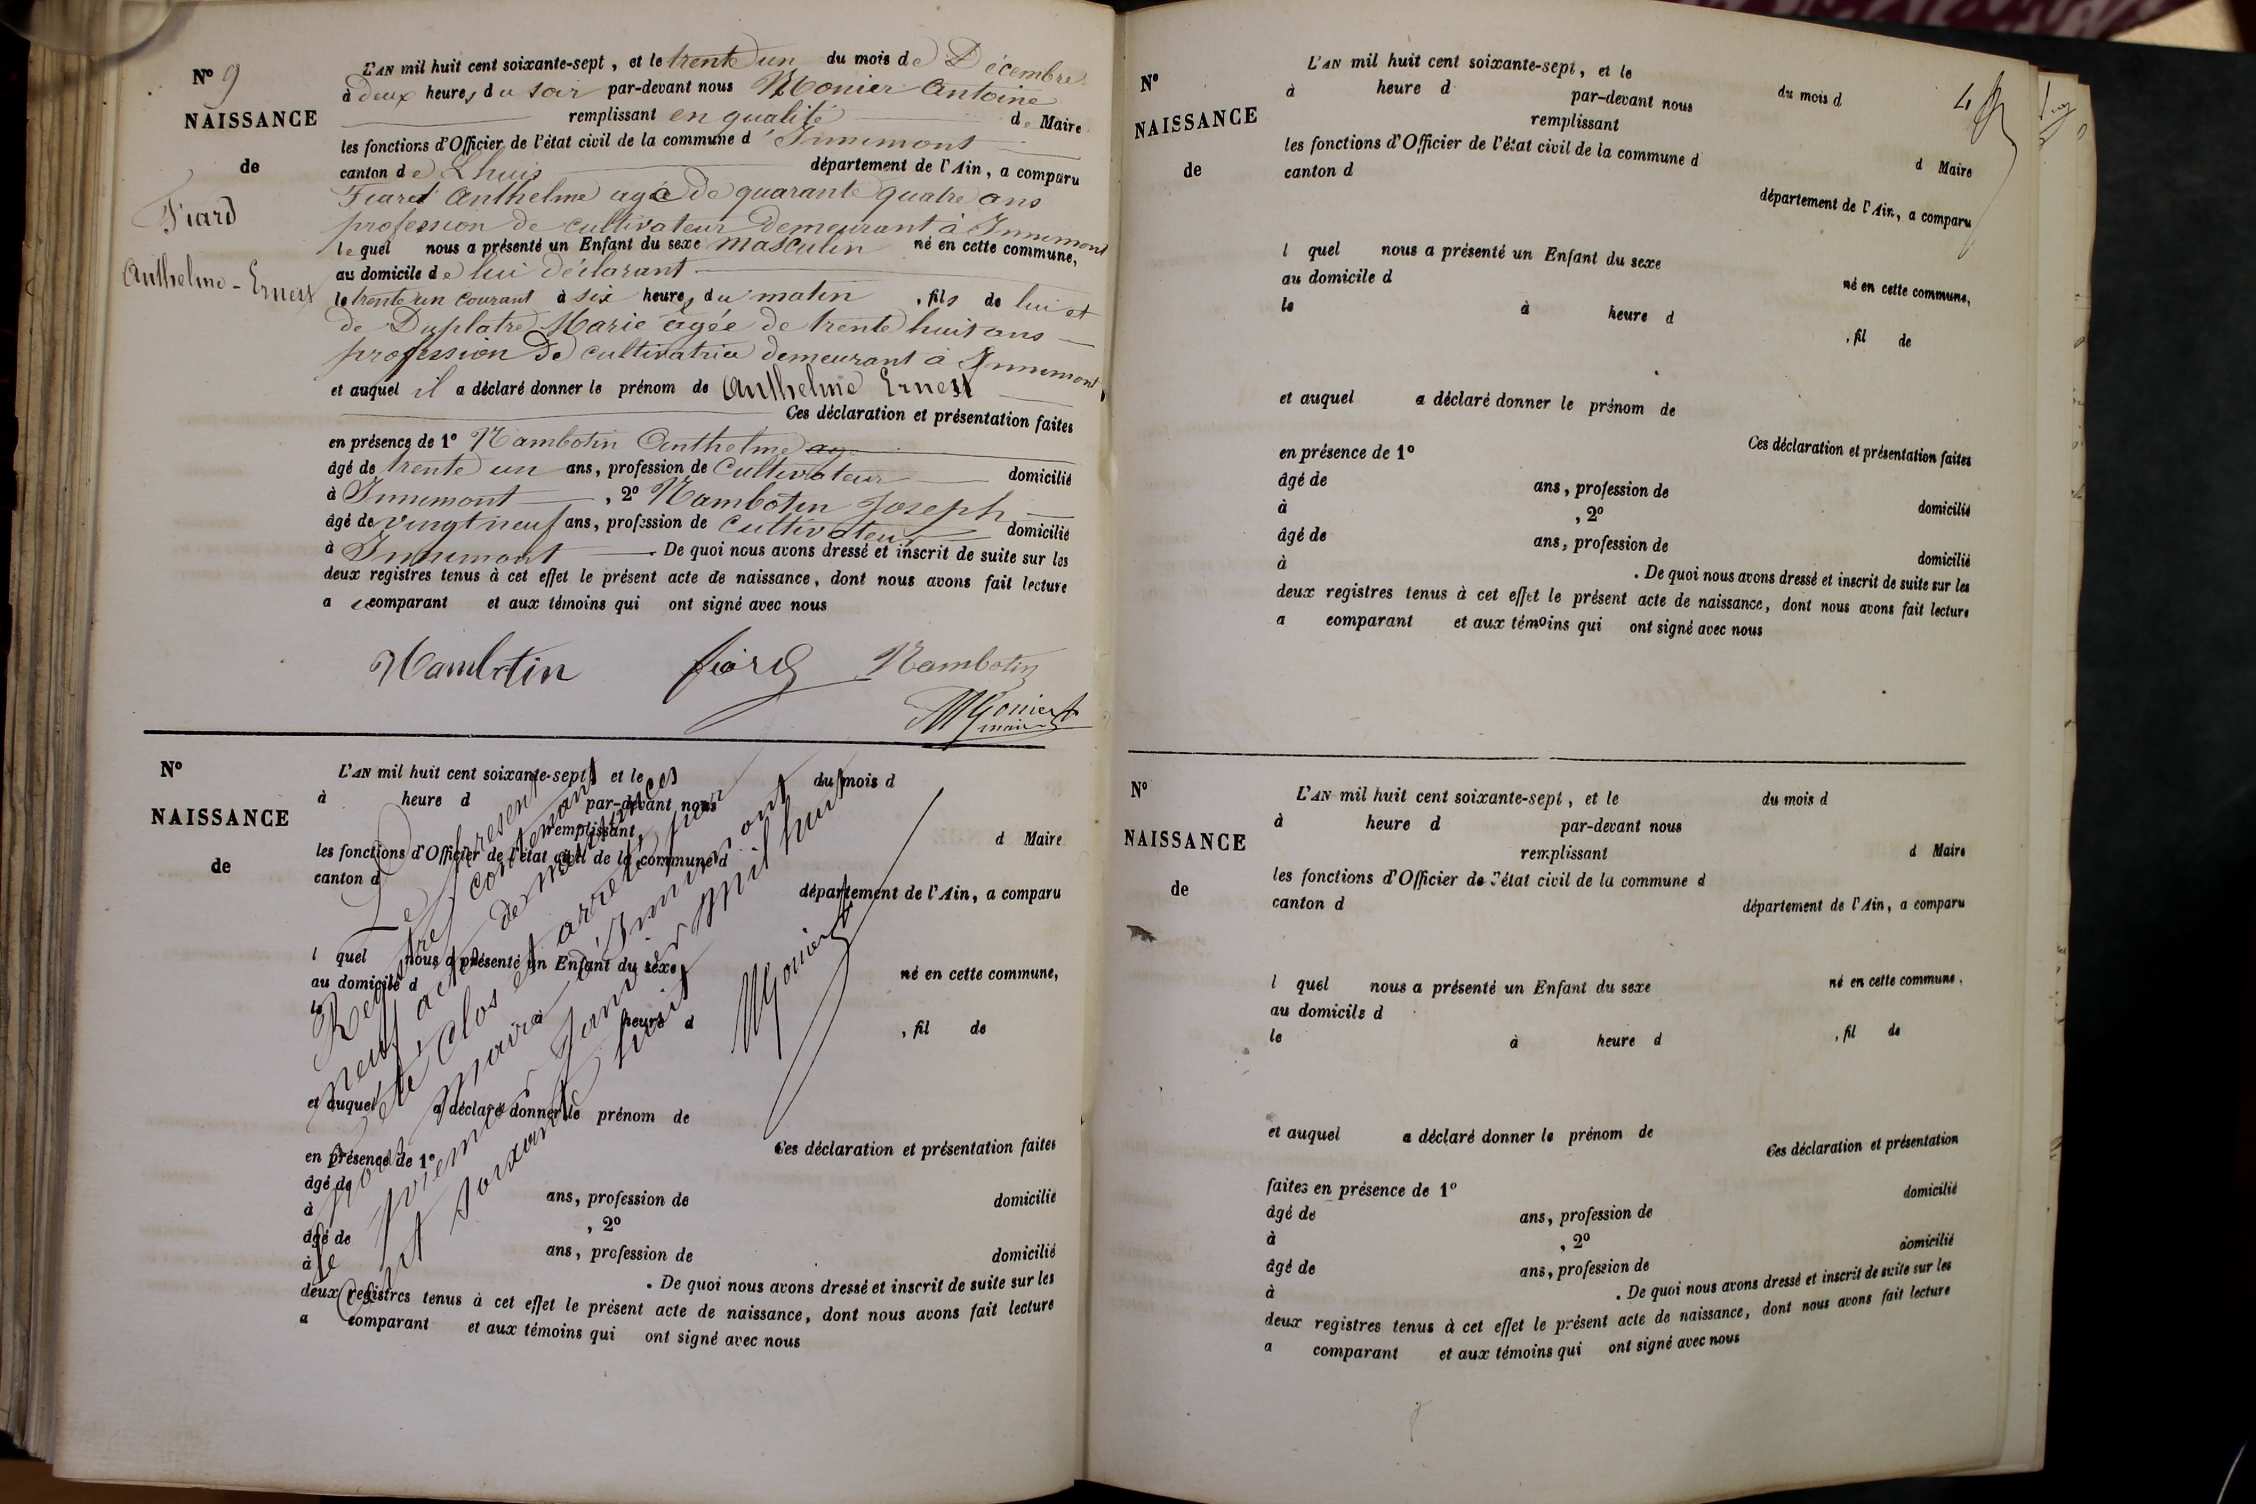 N° 9
NAISSANCE
de
Fiard
Anthelme-Ernest
L'AN mil huit cent soixante-sept, et le trente un du mois de Décembre
à deux heures du soir par-devant nous Monier Antoine
remplissant en qualité de Maire
les fonctions d'Officier de l'état civil de la commune d'Innimont
canton de Lhuis département de l'Ain, a comparu
Fiard Anthelme agé de quarante quatre ans
profession de cultivateur demeurant à Innimont
lequel nous a présenté un Enfant du sexe masculin né en cette commune,
au domicile de lui déclarant
le trente un courant à six heures du matin, fils de lui et
de Duplatre Marie agée de trente huit ans
profession de cultivatrice demeurant à Innimont
et auquel il a déclaré donner le prénom de Anthelme Ernest
Ces déclaration et présentation faites
en présence de 1° Nambotin Anthelme
âgé de trente un ans, profession de cultivateur domicilié
à Innimont, 2° Nambotin Joseph
âgé de vingt neuf ans, profession de cultivateur domicilié
à Innimont. De quoi nous avons dressé et inscrit de suite sur les
deux registres tenus à cet effet le présent acte de naissance, dont nous avons fait lecture
au comparant et aux témoins qui ont signé avec nous
Nambotin fiard Nambotin
Monier
maire
N°
NAISSANCE
de
L'AN mil huit cent soixante-sept, et le du mois d
à heure d par-devant nous
remplissant d Maire
les fonctions d'Officier de l'état civil de la commune d
canton d département de l'Ain, a comparu
l quel nous a présenté un Enfant du sexe né en cette commune,
au domicile d
le à heure d , fil de
et auquel a déclaré donner le prénom de
Ces déclaration et présentation faites
en présence de 1°
âgé de ans, profession de domicilié
à , 2°
âgé de ans, profession de domicilié
à . De quoi nous avons dressé et inscrit de suite sur les
deux registres tenus à cet effet le présent acte de naissance, dont nous avons fait lecture
a comparant et aux témoins qui ont signé avec nous
Le present
Registre contenant
neuf actes de naissances
été clos et arreté par
nous maire d'Innimont
le premier Janvier mil huit
cent soixante huit
Monier
4
N°
NAISSANCE
de
L'AN mil huit cent soixante-sept, et le du mois d
à heure d par-devant nous
remplissant d Maire
les fonctions d'Officier de l'état civil de la commune d
canton d département de l'Ain, a comparu
l quel nous a présenté un Enfant du sexe né en cette commune,
au domicile d
le à heure d , fil de
et auquel a déclaré donner le prénom de
Ces déclaration et présentation faites
en présence de 1°
âgé de ans, profession de domicilié
à , 2°
âgé de ans, profession de domicilié
à . De quoi nous avons dressé et inscrit de suite sur les
deux registres tenus à cet effet le présent acte de naissance, dont nous avons fait lecture
a comparant et aux témoins qui ont signé avec nous
N°
NAISSANCE
de
L'AN mil huit cent soixante-sept, et le du mois d
à heure d par-devant nous
remplissant d Maire
les fonctions d'Officier de l'état civil de la commune d
canton d département de l'Ain, a comparu
l quel nous a présenté un Enfant du sexe né en cette commune,
au domicile d
le à heure d , fil de
et auquel a déclaré donner le prénom de
Ces déclaration et présentation
faites en présence de 1° domicilié
âgé de ans, profession de
à , 2° domicilié
âgé de ans, profession de
à . De quoi nous avons dressé et inscrit de suite sur les
deux registres tenus à cet effet le présent acte de naissance, dont nous avons fait lecture
a comparant et aux témoins qui ont signé avec nous